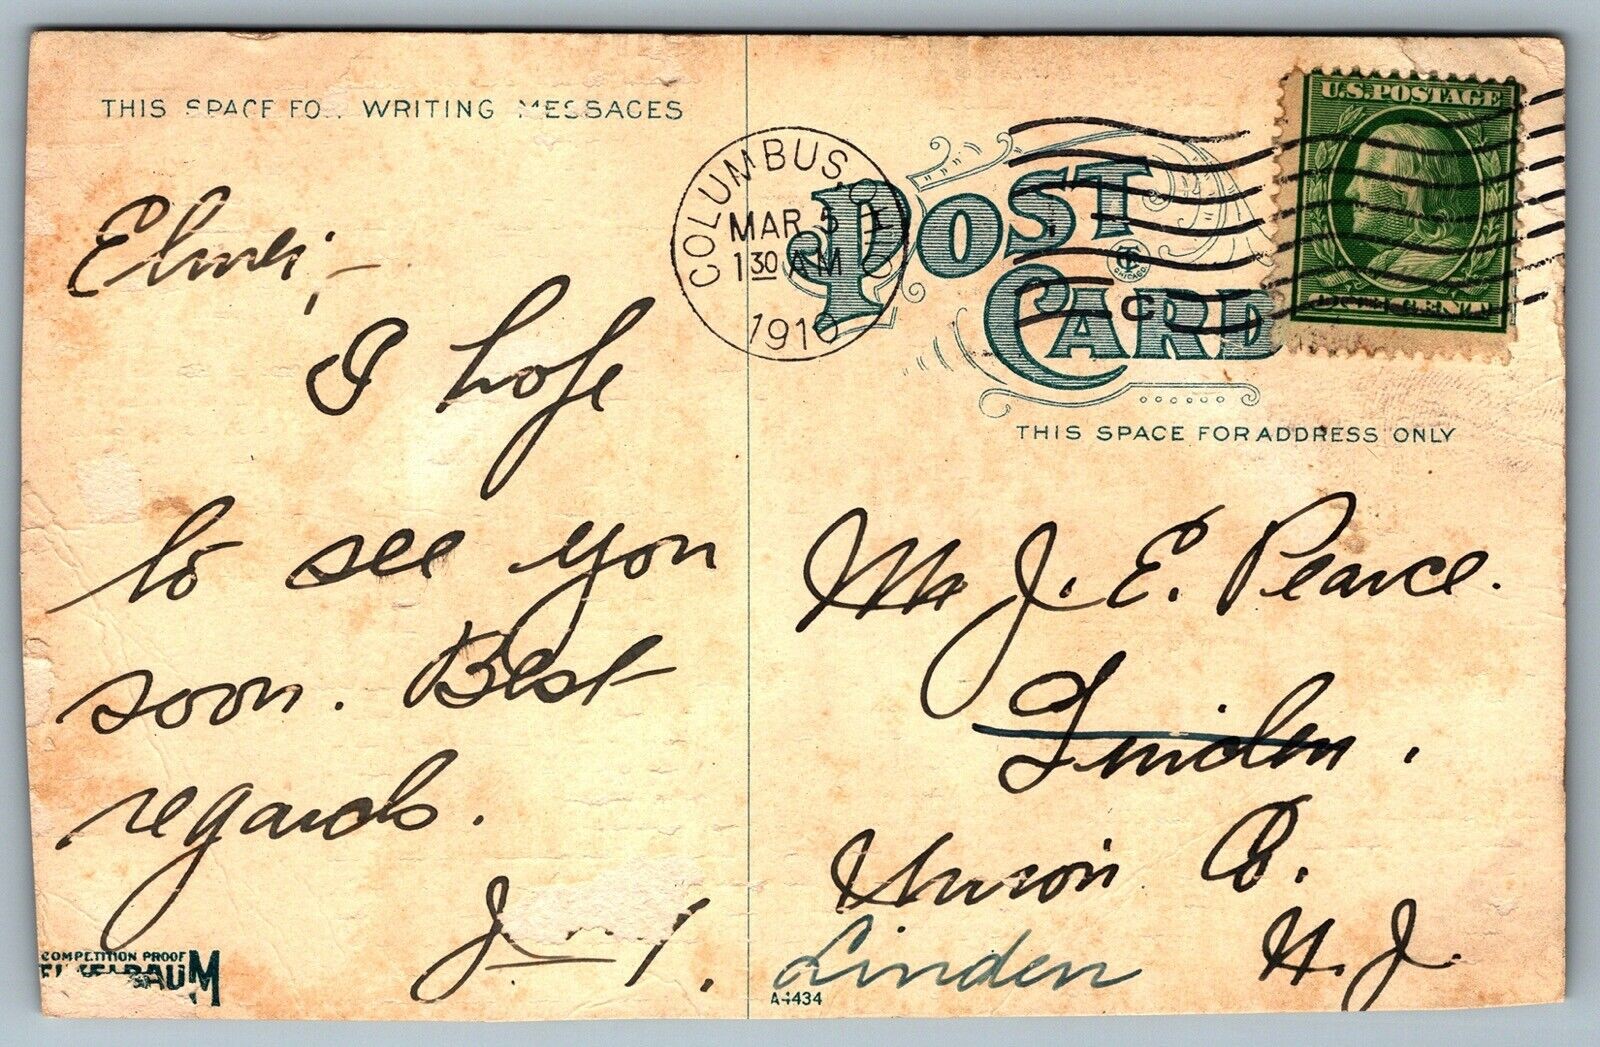 THIS SPACE FO WRITING MESSAGES
Elmer,-
I hope
to see you
soon. Best
regards.
J
COMPETITION PROOF
COLUMBUS, OHIO
MAR 5
1 30 AM
1910
POST
CARD
CHICAGO
C
U.S. POSTAGE
THIS SPACE FOR ADDRESS ONLY
Mr J. E. Pearce.
Linden.
Union Co.
N. J.
Linden
A-4434